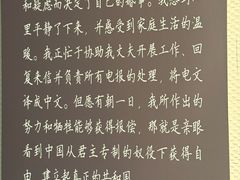 和疑虑而决定了自己的婚事。我感到心
里平静了下来，并感受到家庭生活的温
暖。我正忙于协助我丈夫开展工作、回
复来信并负责所有电报的处理，将电文
译成中文。但愿有朝一日，我所作出的
努力和牺牲能够获得报偿，那就是亲眼
看到中国从君主专制的奴役下获得自
由，建立起真正的共和国。